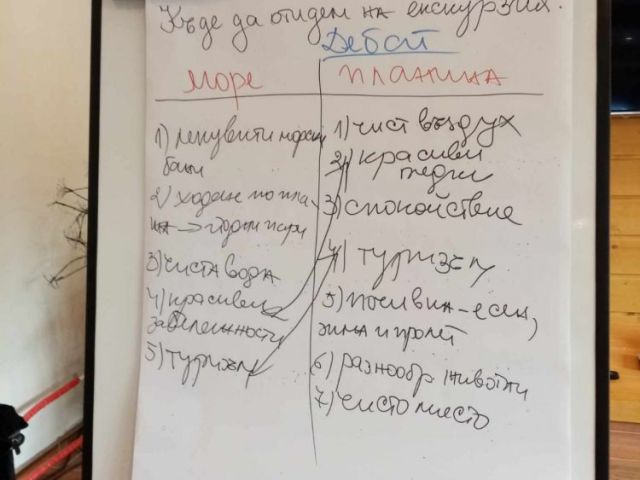 Къде да отидем на екскурзия.
Дебат
море
планина
1) лекувити морски
бани
2) ходене по пла-
жа → йодни пари
3) чиста вода
4) красиви
забележности
5) туризъм
1) чист въздух
2) красиви
гледки
3) спокойствие
4) туризъм
5) почивка - есен,
зима и пролет
6) разнообр животни
7) чисто място